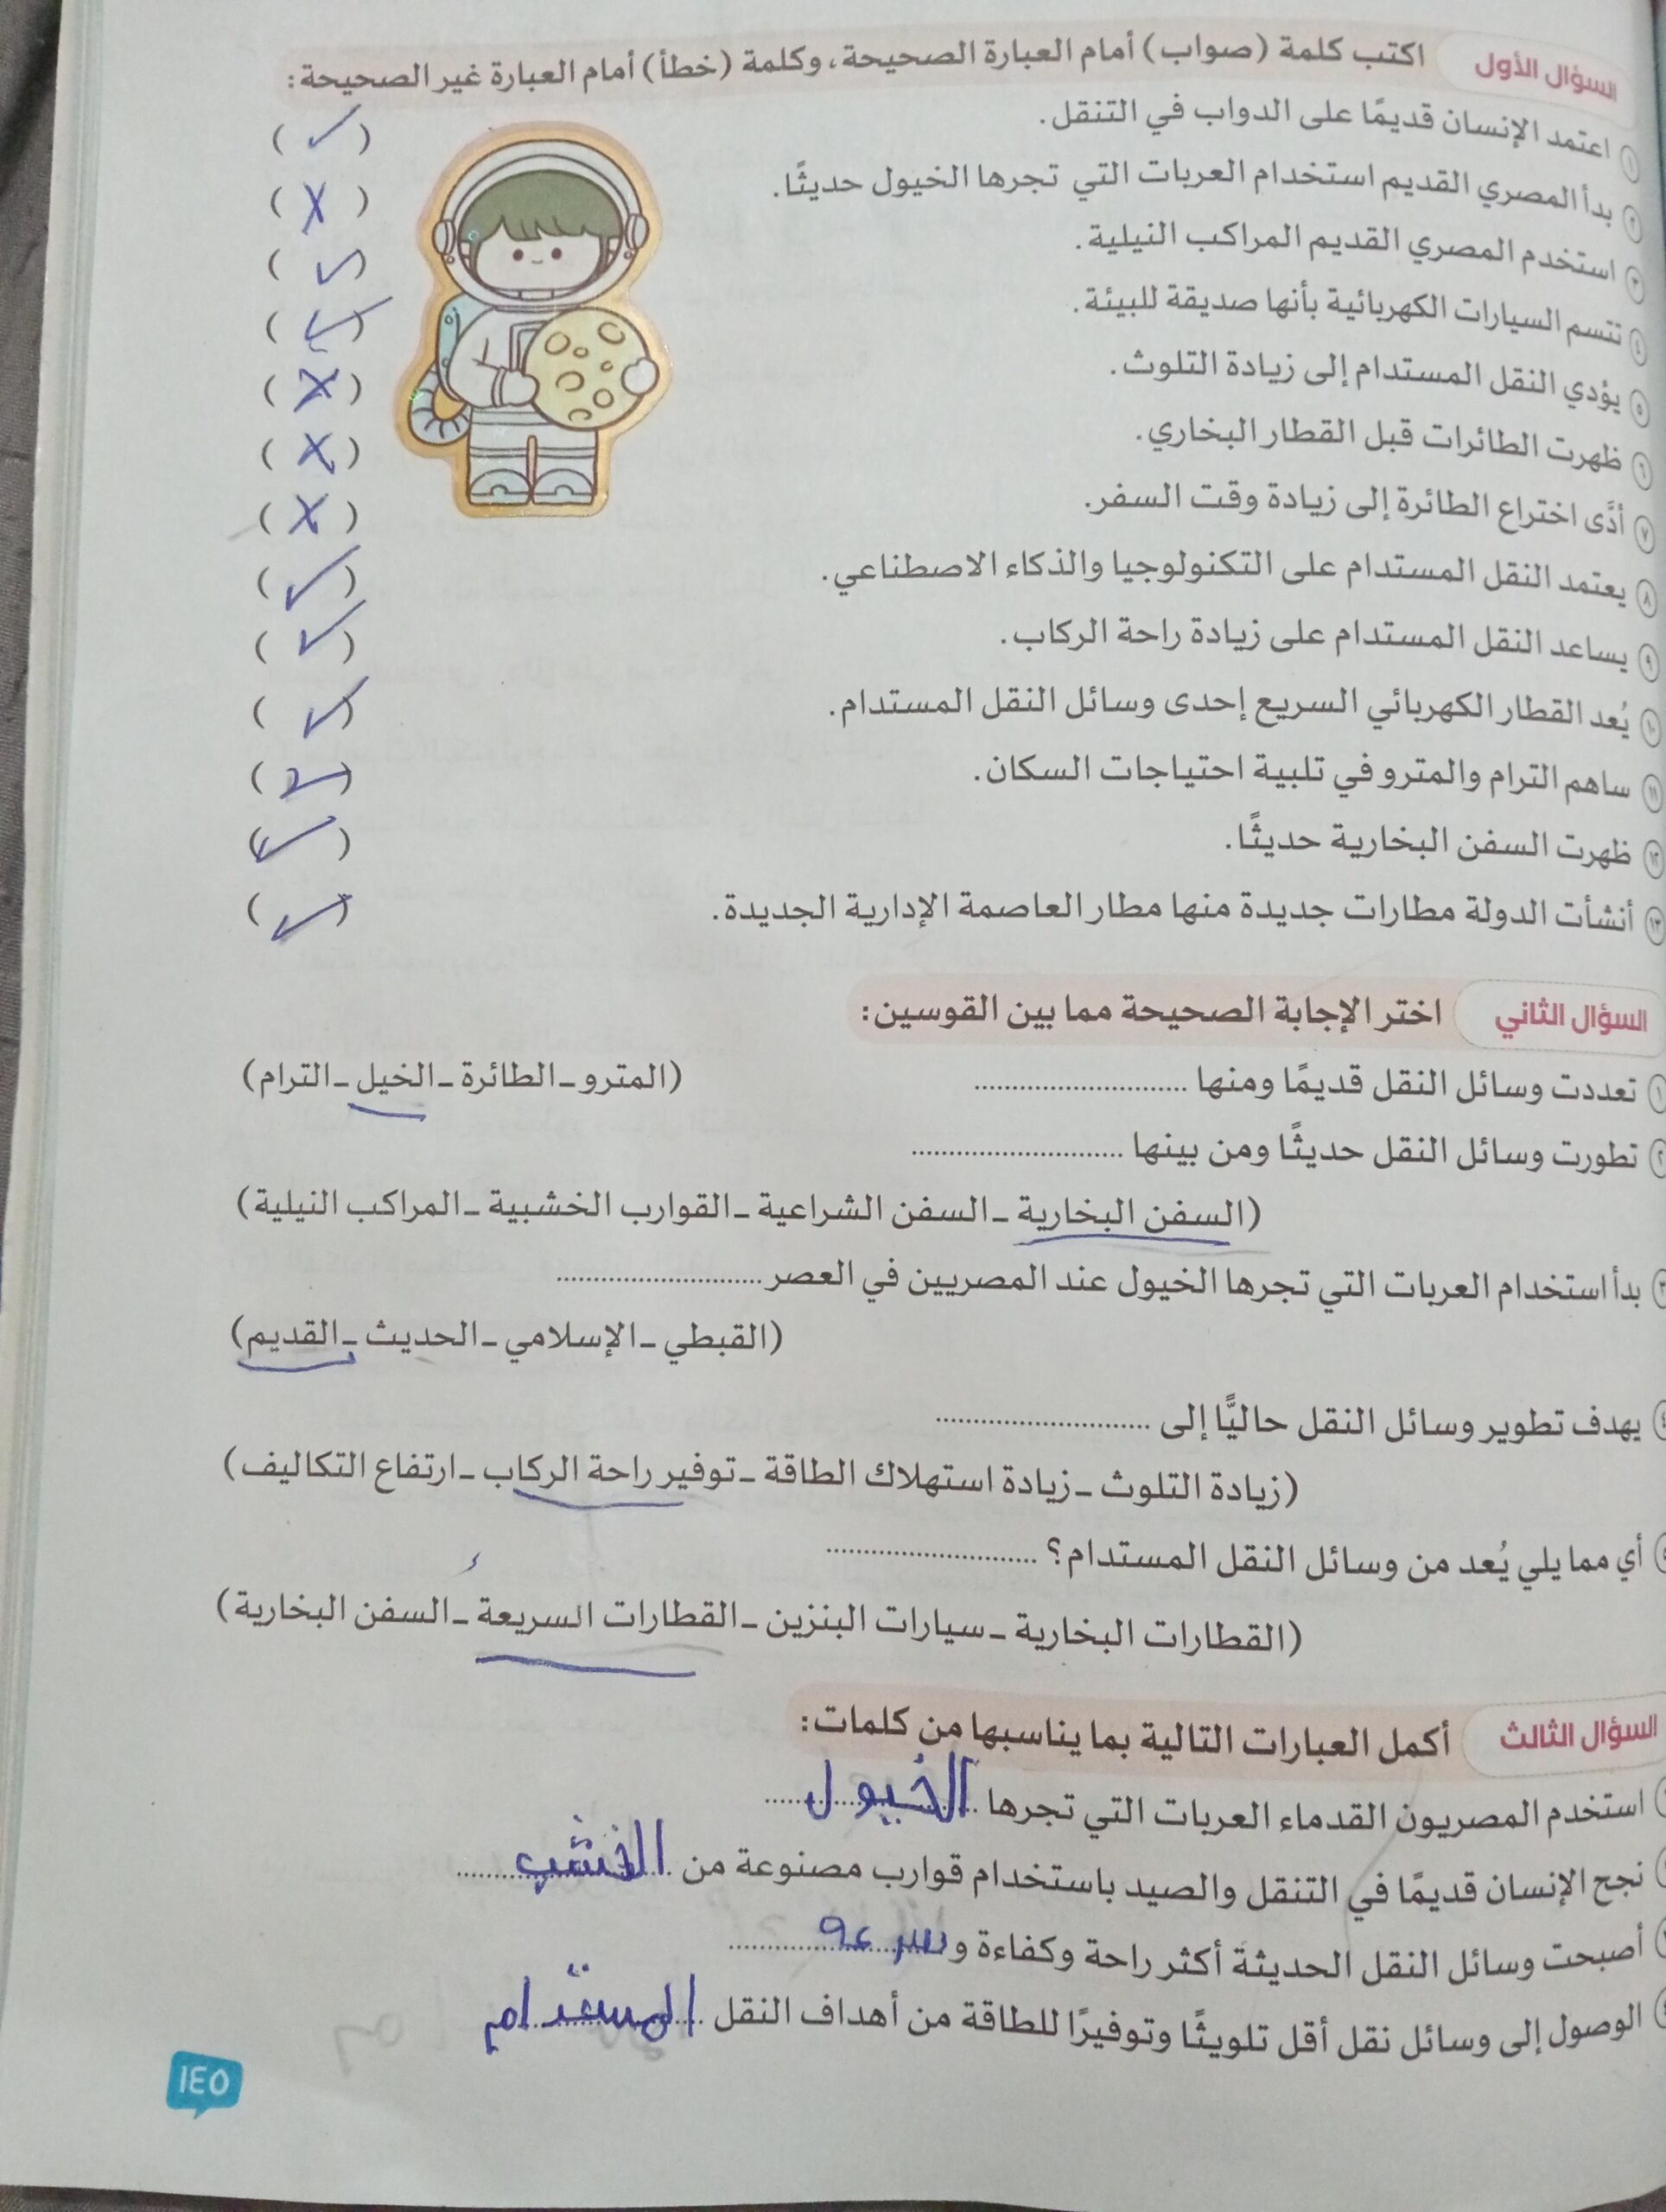 السؤال الأول اكتب كلمة (صواب) أمام العبارة الصحيحة، وكلمة (خطأ) أمام العبارة غير الصحيحة:
١ اعتمد الإنسان قديمًا على الدواب في التنقل. (✓)
٢ بدأ المصري القديم استخدام العربات التي تجرها الخيول حديثًا. (X)
٣ استخدم المصري القديم المراكب النيلية. (✓)
٤ تتسم السيارات الكهربائية بأنها صديقة للبيئة. (✓)
٥ يؤدي النقل المستدام إلى زيادة التلوث. (X)
٦ ظهرت الطائرات قبل القطار البخاري. (X)
٧ أدَّى اختراع الطائرة إلى زيادة وقت السفر. (X)
٨ يعتمد النقل المستدام على التكنولوجيا والذكاء الاصطناعي. (✓)
٩ يساعد النقل المستدام على زيادة راحة الركاب. (✓)
١٠ يُعد القطار الكهربائي السريع إحدى وسائل النقل المستدام. (✓)
١١ ساهم الترام والمترو في تلبية احتياجات السكان. (✓)
١٢ ظهرت السفن البخارية حديثًا. (✓)
١٣ أنشأت الدولة مطارات جديدة منها مطار العاصمة الإدارية الجديدة. (✓)
السؤال الثاني اختر الإجابة الصحيحة مما بين القوسين:
١ تعددت وسائل النقل قديمًا ومنها .......................... (المترو - الطائرة - الخيل - الترام)
٢ تطورت وسائل النقل حديثًا ومن بينها ..........................
(السفن البخارية - السفن الشراعية - القوارب الخشبية - المراكب النيلية)
٣ بدأ استخدام العربات التي تجرها الخيول عند المصريين في العصر ..........................
(القبطي - الإسلامي - الحديث - القديم)
٤ يهدف تطوير وسائل النقل حاليًّا إلى ..........................
(زيادة التلوث - زيادة استهلاك الطاقة - توفير راحة الركاب - ارتفاع التكاليف)
أي مما يلي يُعد من وسائل النقل المستدام؟ ..........................
(القطارات البخارية - سيارات البنزين - القطارات السريعة - السفن البخارية)
السؤال الثالث أكمل العبارات التالية بما يناسبها من كلمات:
استخدم المصريون القدماء العربات التي تجرها الخيول
نجح الإنسان قديمًا في التنقل والصيد باستخدام قوارب مصنوعة من الخشب
أصبحت وسائل النقل الحديثة أكثر راحة وكفاءة و سرعه
الوصول إلى وسائل نقل أقل تلويثًا وتوفيرًا للطاقة من أهداف النقل المستدام
١٤٥